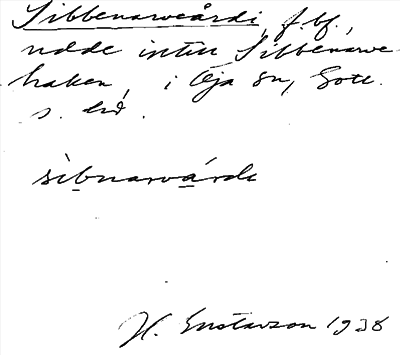 Sibbenarveårdi, f. bf.,
udde intill Sibbenarve-
haken, i Öja sn, Gotl.
s. hd.
sibnarvárdi
H. Gustavson 1938